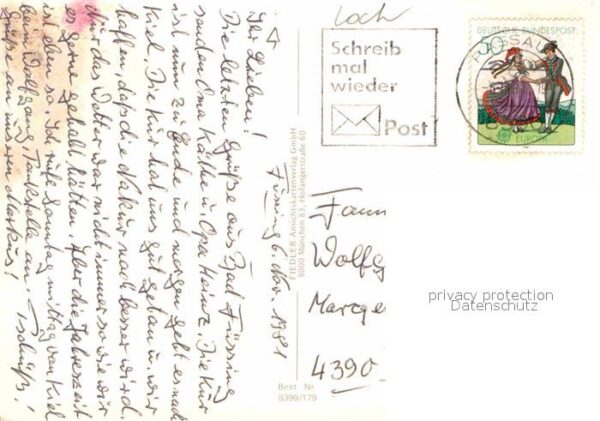 Loch
Schreib
mal
wieder
Post
DEUTSCHE BUNDESPOST
50
PASSAU
EUROPA
1981
Füssing, 6. Nov. 1981
Ihr Lieben!
Die letzten Grüße aus Bad Füssing
senden Oma Käthe u. Opa Heinz. Die Kur
ist nun zu Ende und morgen geht es nach
Kiel. Die Kur hat uns gut getan u. wir
hoffen, daß die Natur noch besser wird.
Nur das Wetter war nicht immer so wie wir
es gerne gehabt hätten. Aber die Jahreszeit
ist eben so. Ich rufe Sonntag mittag von Kiel
bei Wolfgang, Tankstelle an. Tschüß!
Grüße an unseren Markus!
FIEDLER Ansichtskartenverlag GmbH
8000 München 83, Hofangerstraße 60
Best Nr
8399/179
Fam
Wolfg
Marge
4390
privacy protection
Datenschutz